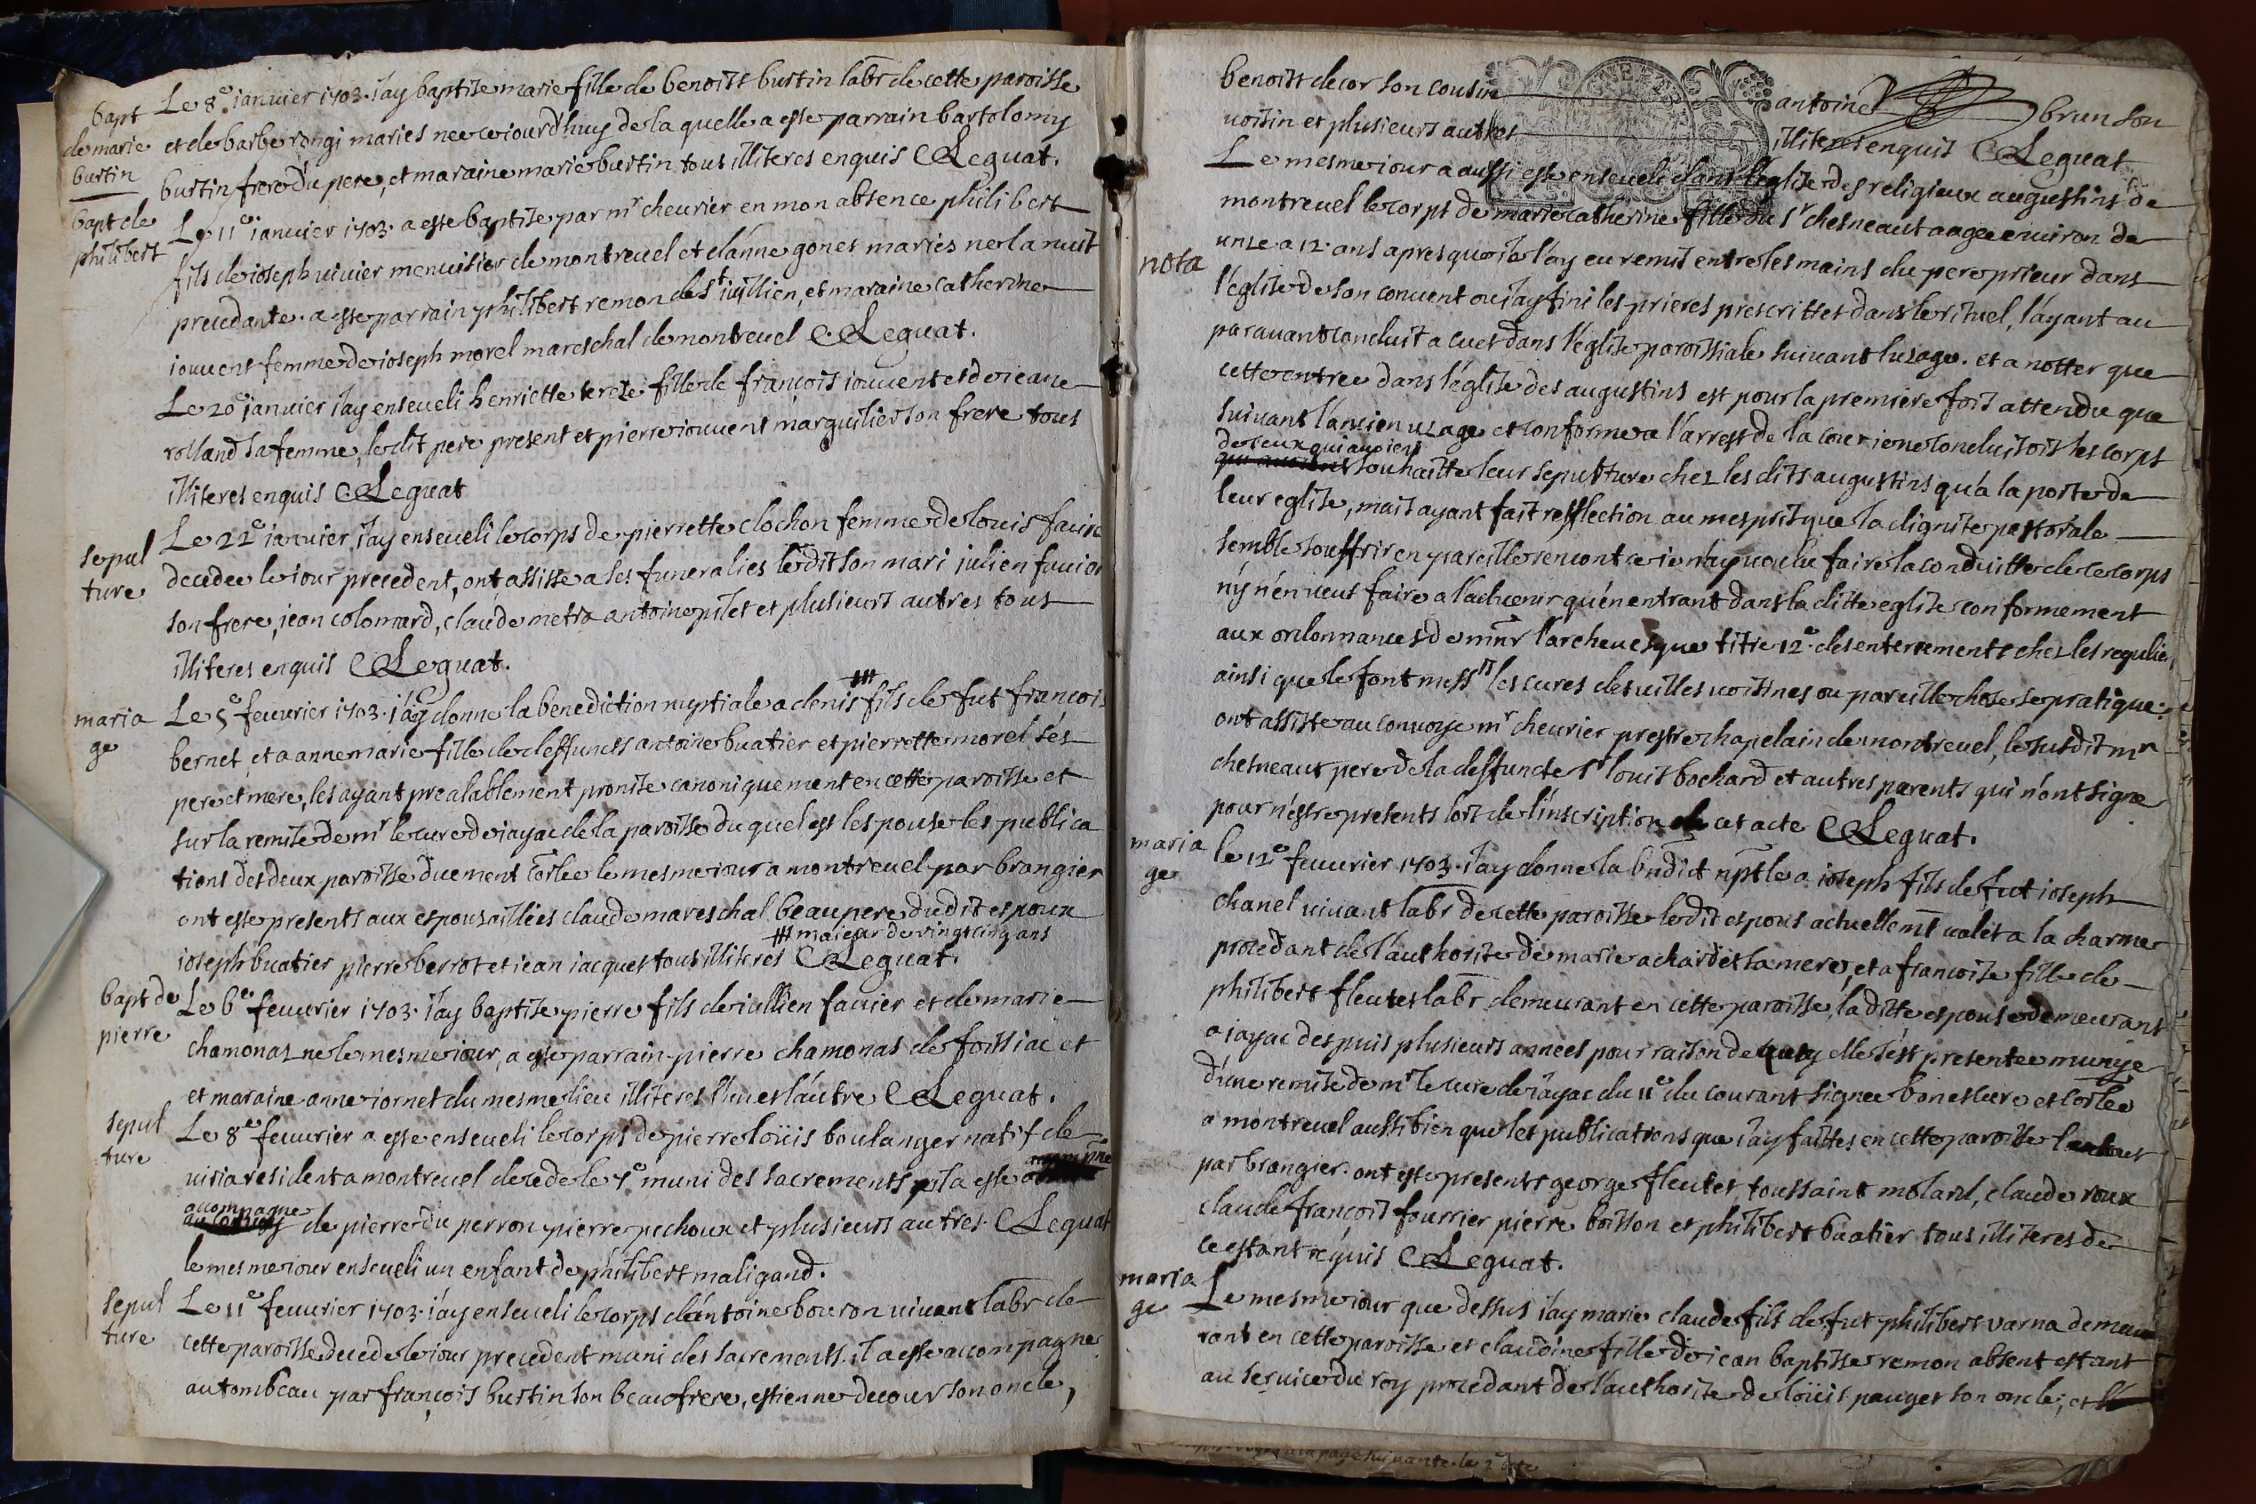 bapt
de marie
burtin
Le 8e. ianuier 1703. iay baptise marie fille de benoist burtin labr de cette paroisse
et de barbe rongi maries nee ce iourdhuy de la quelle a este parrain bartolomy
burtin frere du pere, et maraine marie burtin tous illiteres enquis CLeguat.
bapt de
philibert
Le 11e. ianuier 1703. a este baptise par mr cheurier en mon absence philibert
fils de ioseph uiuier menuisier de montreuel et d'anne gonet maries ne la nuit
precedante. a este parrain philibert remond de st iullien, et maraine catherine
iouuent femme de ioseph morel mareschal de montreuel CLeguat.
Le 20e ianuier iay enseueli henriette tereze fille de françois iouuent et de ieane
rolland sa femme, ledit pere present et pierre iouuent marguilier son frere tous
illiteres enquis CLeguat
sepul
ture
Le 22e ianuier iay enseueli le corps de pierrette clochon femme de louis fauie
decedee le iour precedent, ont assiste a ses funeralies ledit son mari julien fauier
son frere, jean colomard, claude metra antoine pilet et plusieurs autres tous
illiteres enquis CLeguat.
maria
ge
Le 5e feuurier 1703. i'ay donne la benediction nuptiale a denis # fils de fut francois
bernet, et a anne marie fille de deffuncts antoine buatier et pierrette morel ses
pere et mere, les ayant prealablement pronise canoniquement en cette paroisse et
sur la remise de mr le cure de iayac de la paroisse duquel est lespouse les publica
tions des deux paroisse duement corlee le mesme iour a montreuel par brangier
ont este presents aux espousailles claude mareschal beaupere dudit espoux
# maieur de vingt cinq ans
ioseph buatier pierre berrot et iean iacquet tous illiteres CLeguat.
bapt de
pierre
Le 6e feuurier 1703. iay baptise pierre fils de iullien fauier et de marie
chamonas ne le mesme iour, a este parrain pierre chamonas de foissiac et
et maraine anne iornet du mesme lieu illiteres l'un et l'autre CLeguat.
sepul
ture
Le 8e feuurier a este enseueli le corps de pierre loüis boulanger natif de
uiria resident a montreuel decede le 7e muni des sacrements, il a este
accompagne
de pierre du perron pierre pechoux et plusieurs autres. CLeguat
le mesme iour enseueli un enfant de philibert maligand.
sepul
ture
Le 11e feuurier 1703. i'ay enseueli le corps d'antoine bouron uiuant labr de
cette paroisse decede le iour precedent muni des sacrements. il a este accompagne
au tombeau par françois burtin son beaufrere, estienne decour son oncle,
benoist decor son cousin antoine brun son
uoisin et plusieurs autres illiteres enquis CLeguat
Le mesme iour a aussi este enseueli dans l'eglise des religieux augustins de
montreuel le corps de marie catherine fille du sr chesneaut aagee enuiron de
nota
unze a 12. ans apres que ie l'ay eu remis entre les mains du pere prieur dans
l'eglise de son conuent ou iay fini les prieres prescrittes dans le rituel, l'ayant au
parauant conduit a cuet dans l'eglise paroissiale suiuant lusage. et a notter que
cette entree dans l'eglise des augustins est pour la premiere fois attendu que
suiuant l'ancien usage et conforme a l'arrest de la cour ie ne conduisois les corps
de ceux qui auoient
souhaitte leur sepulture chez les dits augustins qu'a la porte de
leur eglise, mais ayant fait refflection au mespris que la dignite pastorale
semble souffrir en pareille rencontre ie n'ay uoulu faire la conduitte de ce corps
ny n'en ueus faire a l'aduenir qu'en entrant dans la ditte eglise conformement
aux ordonnances de mnr l'archeuesque titre 12e. des enterrements chez les regulies
ainsi que le font messrs les cures des uilles uoisines ou pareille chose se pratique.
ont assiste au conuoye mr cheurier prestre chapelain de montreuel, le susdit mr
chesneaut pere de la deffuncte sr louis bochard et autres parents qui n'ont signe
pour n'estre presents lors de l'inscription de cet acte CLeguat.
maria
ge
le 12e feuurier 1703. iay donne la bndict nptle a ioseph fils de fut ioseph
chanel uiuant labr de cette paroisse ledit espous actuellemt ualet a la charme
procedant de l'authorite de marie achardet sa mere, et a francoise fille de
philibert fleutet labr demeurant en cette paroisse, la ditte espouse demeurant
a iayac despuis plusieurs annees pour raison de quoy elle s'est presentee munye
d'une remise de mr le cure de iayac du 11e du courant signee bonescure et corlee
a montreuel aussi bien que les publications que iay faittes en cette paroisse
par brangier. ont este presents george fleutet, toussaint molard, claude roux
claude francois fourrier pierre boisson et philibert buatier tous illiteres de
ce estant requis CLeguat.
maria
ge
Le mesme iour que dessus i'ay marie claude fils de fut philibert varna demeu
rant en cette paroisse et claudine fille de iean baptiste remon absent estant
au seruice du roy procedant de l'authorite de loüis pauget son oncle, et
page suiuante. le 2e